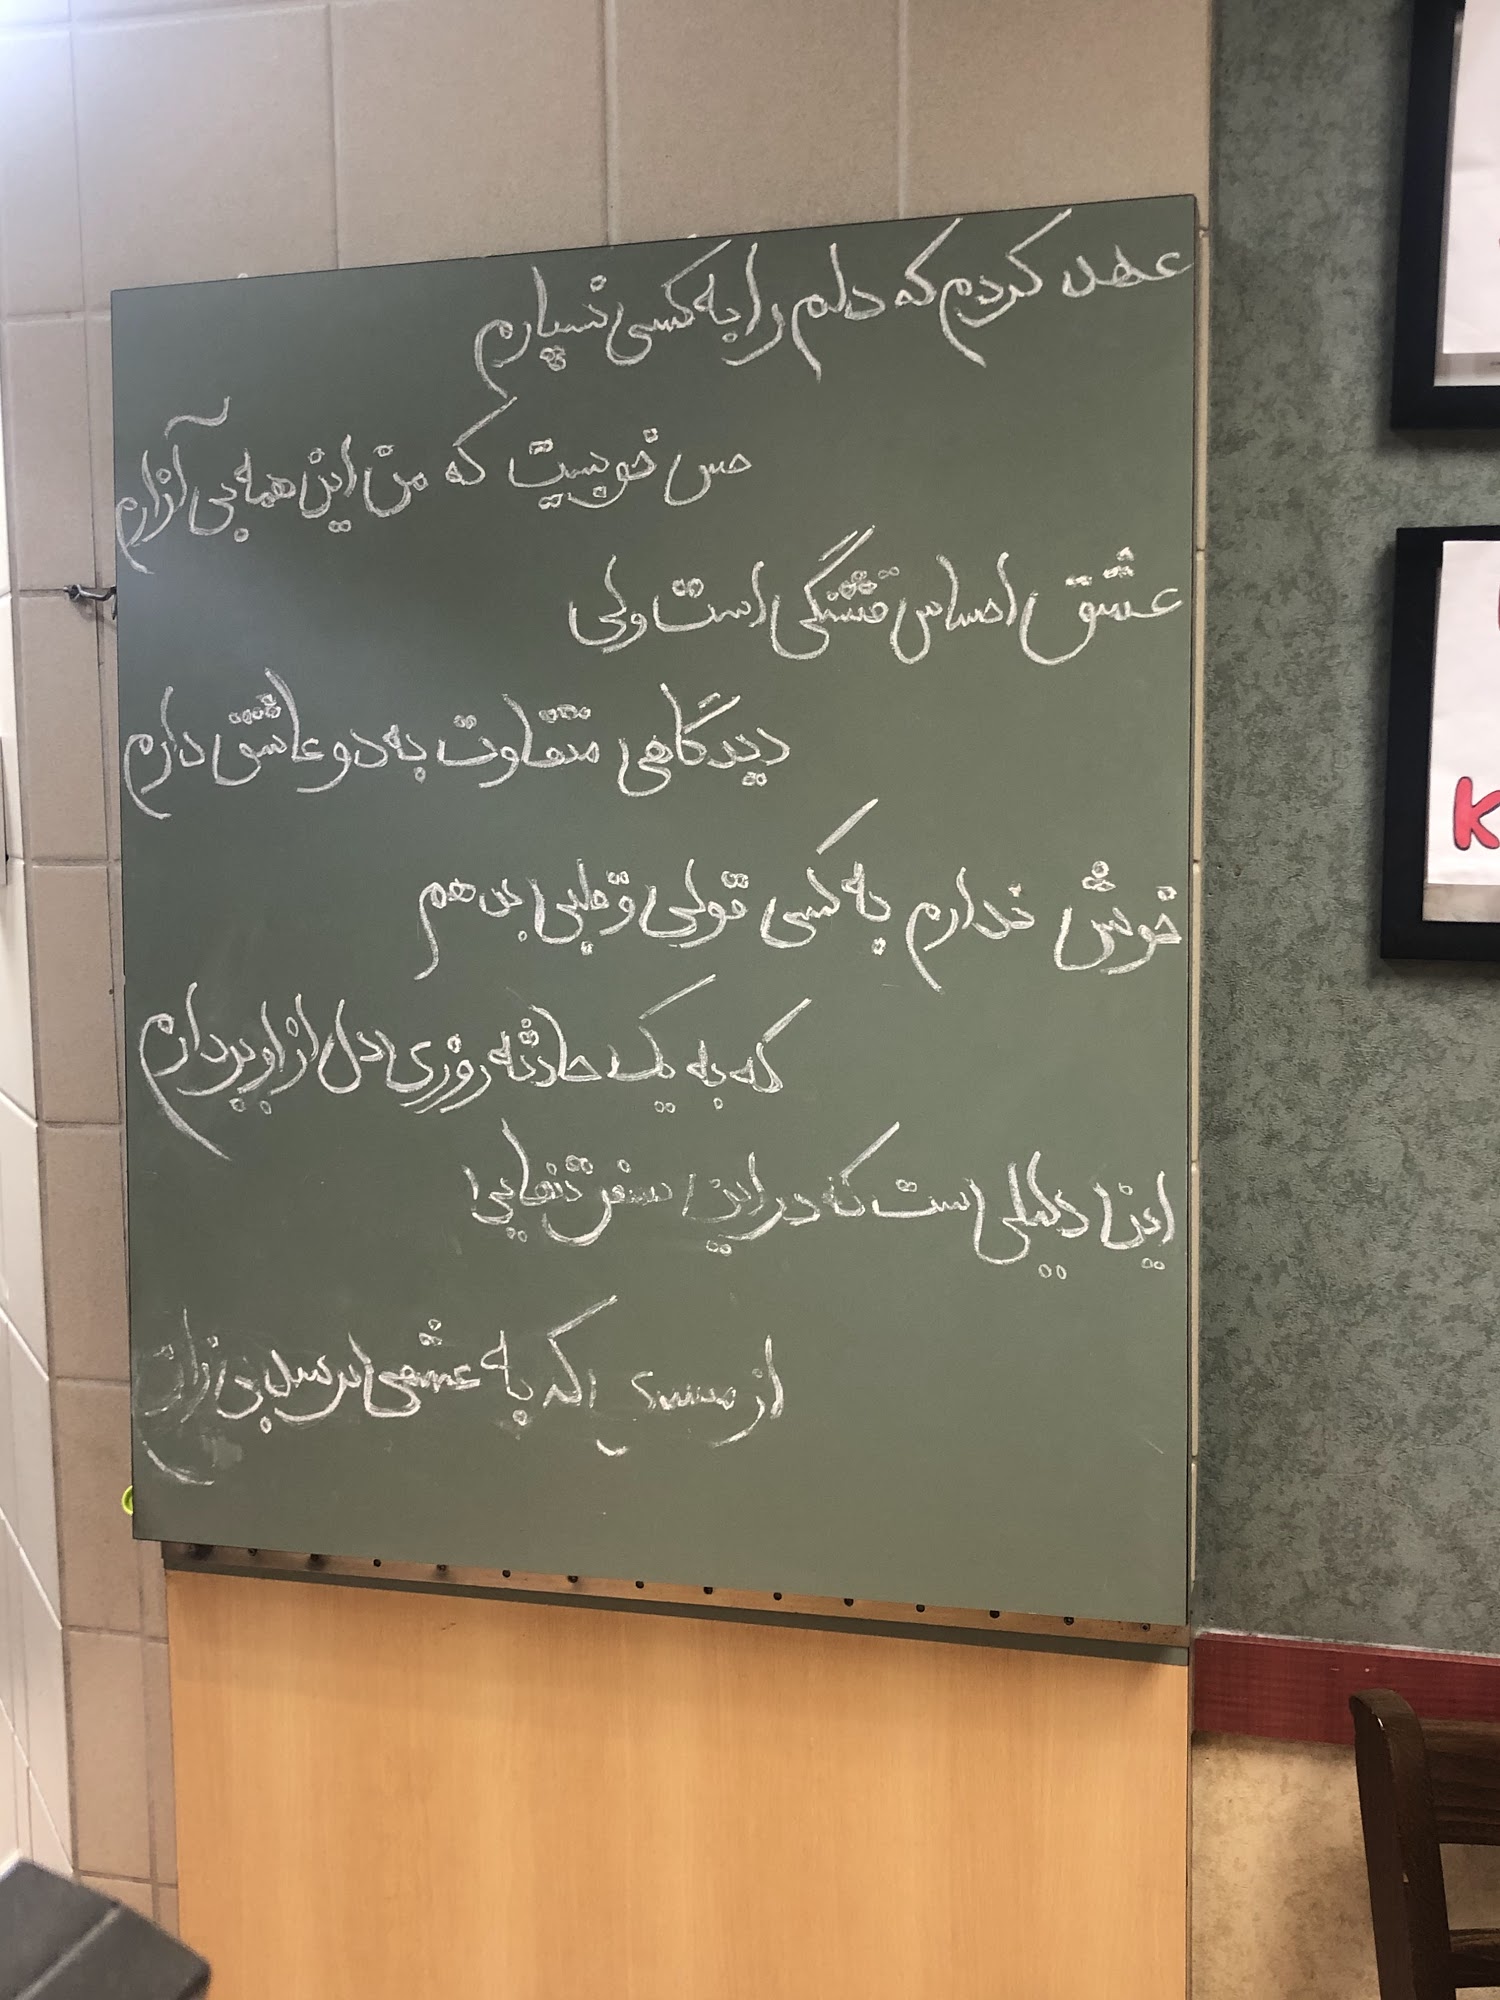 عهد کردم که دلم را به کسی نسپارم
حس خوبیست که من این همه بی آزارم
عشق احساس قشنگی است ولی
دیدگاهی متفاوت به دو عاشق دارم
خوش ندارم به کسی قولی و قلبی بدهم
که به یک حادثه روزی دل از او بردارم
اینا دلیلی است که در این سفر تنهایی
از که به عشقی برسد بی زارم
K